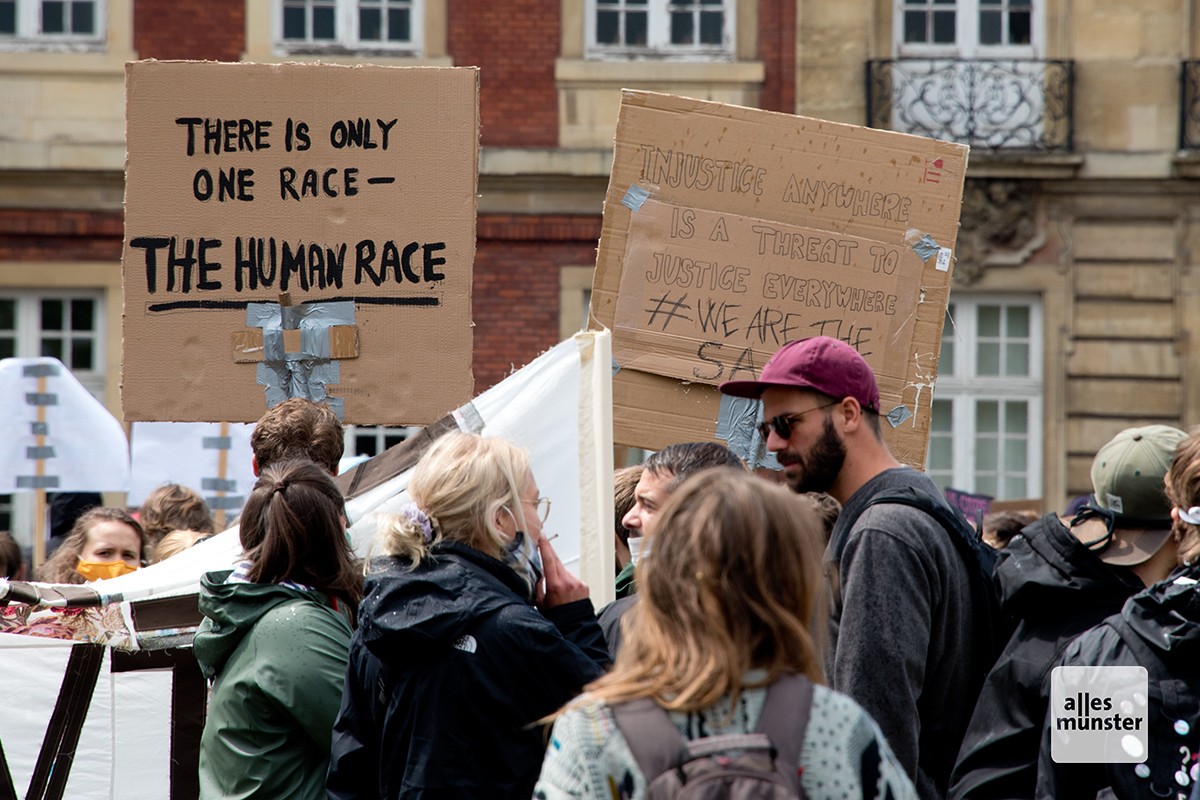 THERE IS ONLY
ONE RACE —
THE HUMAN RACE
INJUSTICE ANYWHERE
IS A THREAT TO
JUSTICE EVERYWHERE
#WE ARE THE
SA
THE NORTH FACE
alles
münster